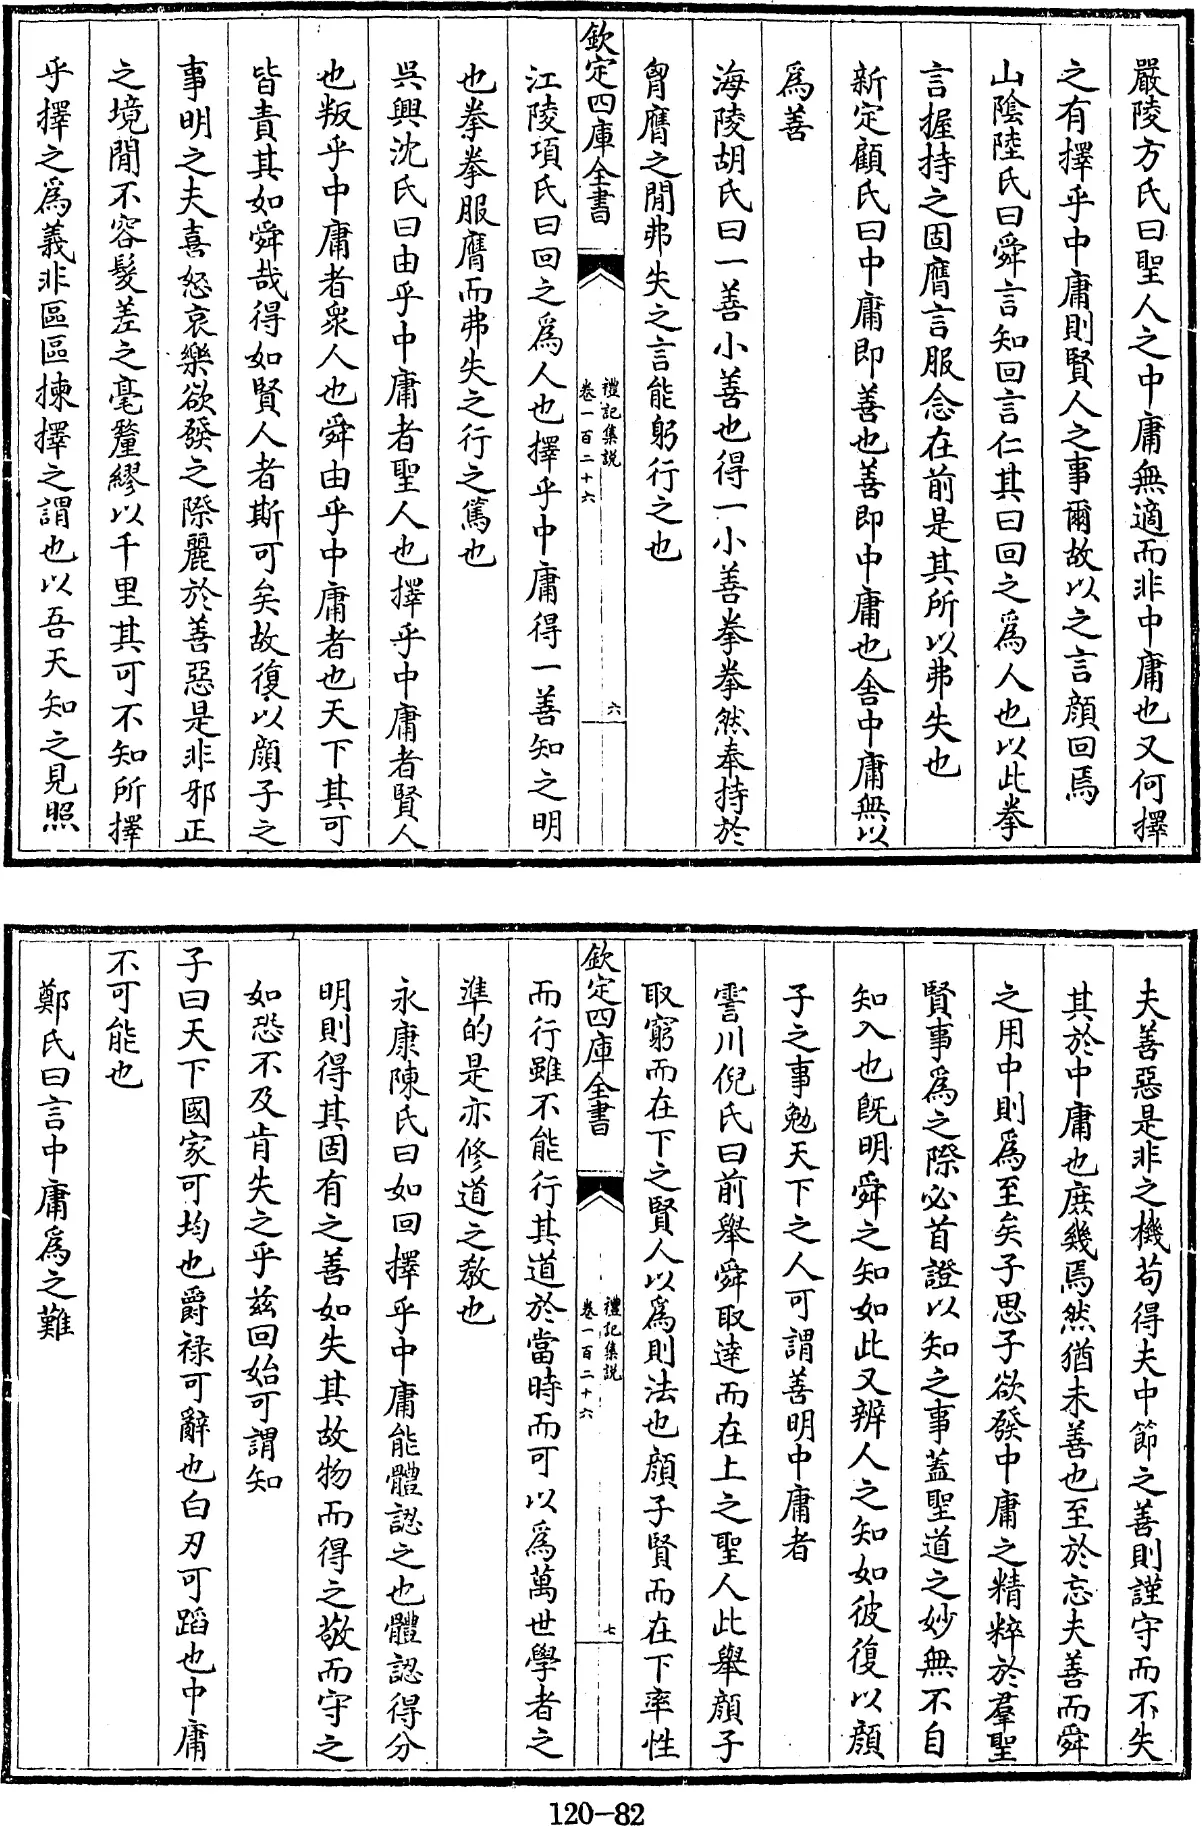 嚴陵方氏曰聖人之中庸無適而非中庸也又何擇
之有擇乎中庸則賢人之事爾故以之言顔回焉
山陰陸氏曰舜言知回言仁其曰回之爲人也以此拳
言握持之固膺言服念在前是其所以弗失也
新定顧氏曰中庸即善也善即中庸也舍中庸無以
爲善
海陵胡氏曰一善小善也得一小善拳拳然奉持於
胷膺之閒弗失之言能躬行之也
欽定四庫全書
禮記集説
卷一百二十六
六
江陵項氏曰回之爲人也擇乎中庸得一善知之明
也拳拳服膺而弗失之行之篤也
吳興沈氏曰由乎中庸者聖人也擇乎中庸者賢人
也叛乎中庸者衆人也舜由乎中庸者也天下其可
皆責其如舜哉得如賢人者斯可矣故復以顔子之
事明之夫喜怒哀樂欲發之際麗於善惡是非邪正
之境閒不容髮差之毫釐繆以千里其可不知所擇
乎擇之爲義非區區揀擇之謂也以吾天知之見照
夫善惡是非之機苟得夫中節之善則謹守而不失
其於中庸也庶幾焉然猶未善也至於忘夫善而舜
之用中則爲至矣子思子欲發中庸之精粹於羣聖
賢事爲之際必首證以知之事蓋聖道之妙無不自
知入也既明舜之知如此又辨人之知如彼復以顔
子之事勉天下之人可謂善明中庸者
霅川倪氏曰前舉舜取達而在上之聖人此舉顔子
取窮而在下之賢人以爲則法也顔子賢而在下率性
欽定四庫全書
禮記集説
卷一百二十六
七
而行雖不能行其道於當時而可以爲萬世學者之
準的是亦修道之敎也
永康陳氏曰如回擇乎中庸能體認之也體認得分
明則得其固有之善如失其故物而得之敬而守之
如恐不及肯失之乎兹回始可謂知
子曰天下國家可均也爵禄可辭也白刃可蹈也中庸
不可能也
鄭氏曰言中庸爲之難
120-82